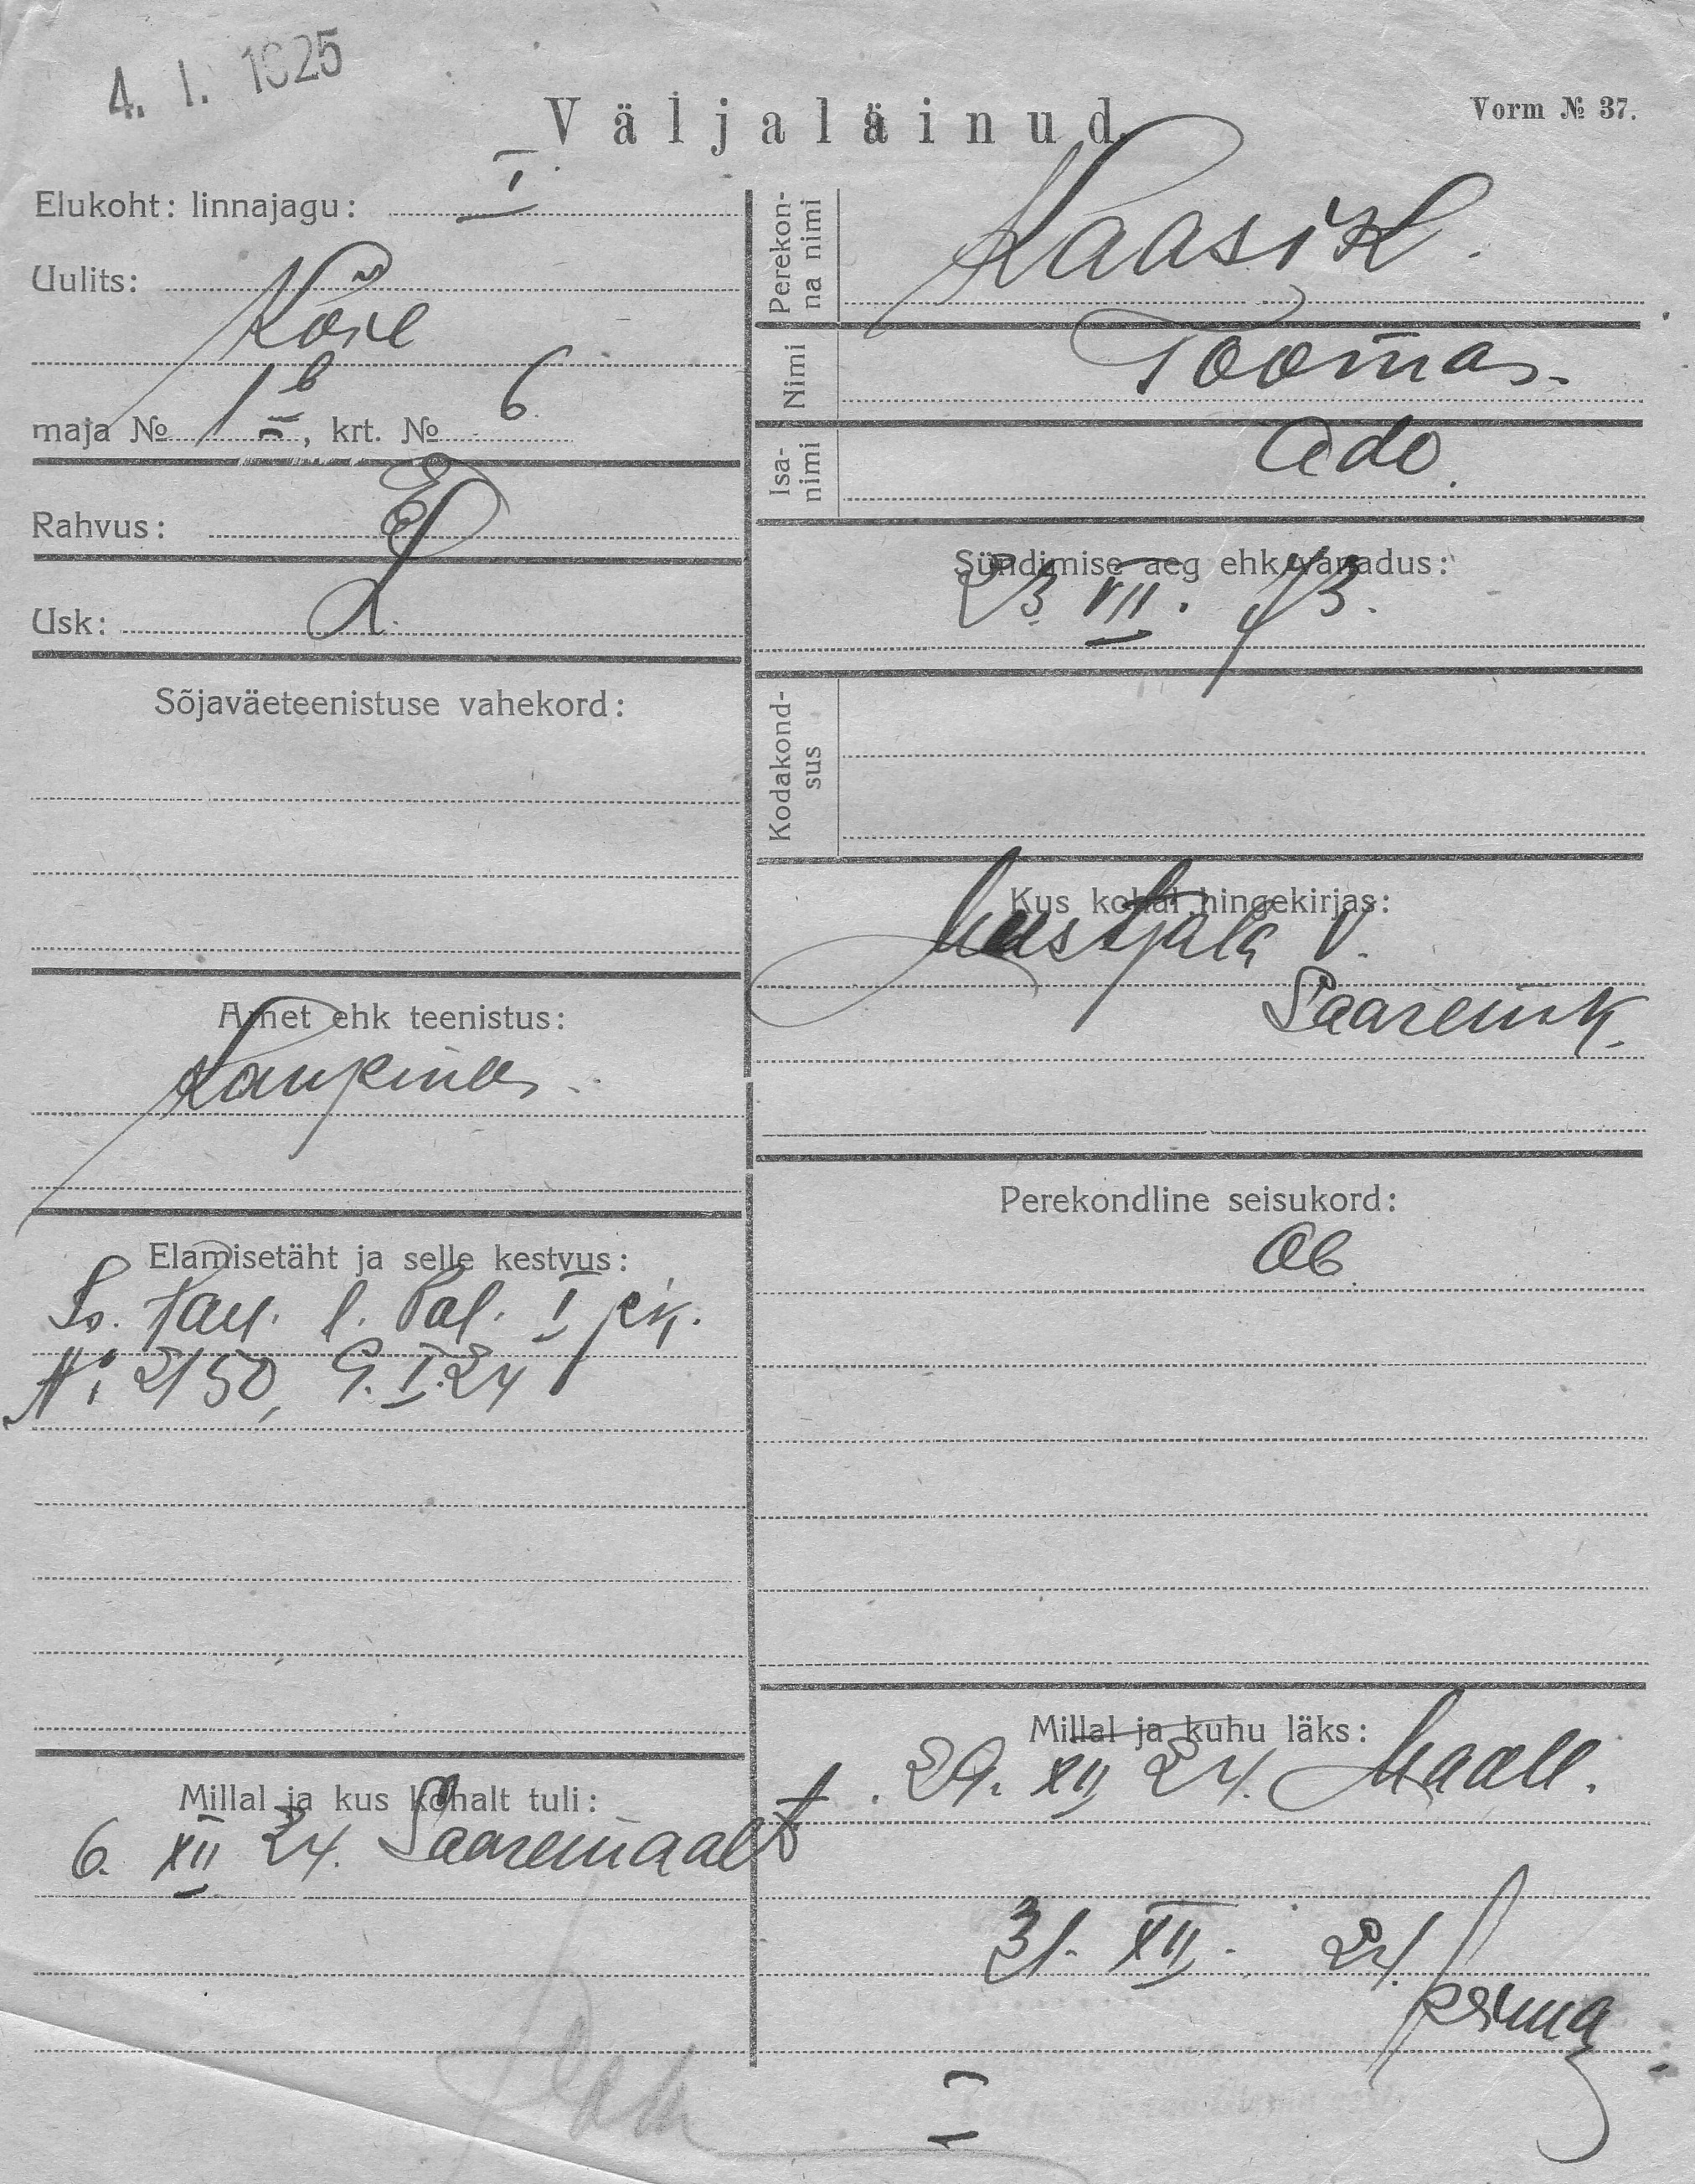 4. I. 1925
Väljaläinud.
Vorm № 37.
Elukoht: linnajagu: I
Uulits:
Kõie
maja № 1b, krt. № 6
Rahvus: E
Usk: L.
Sõjaväeteenistuse vahekord:
Amet ehk teenistus:
Kaupmees
Elamisetäht ja selle kestvus:
l. Pol. I jsk.
№ 2150, 9. I. 24
Millal ja kus kohalt tuli:
6. XII 24. Saaremaalt
Perekonna nimi
Kaasik.
Nimi
Toomas.
Isanimi
Ado.
Sündimise aeg ehk vanadus:
23 VII. 73.
Kodakondsus
Kus kohal hingekirjas:
Mustjala v.
Saaremk.
Perekondline seisukord:
Ab.
Millal ja kuhu läks:
29. XII 24. Maale.
31. XII. 24.
I